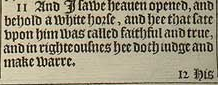 11 And I sawe heauen opened, and
behold a white horse, and hee that sate
vpon him was called faithful and true,
and in righteousnes hee doth iudge and
make warre.
12 His